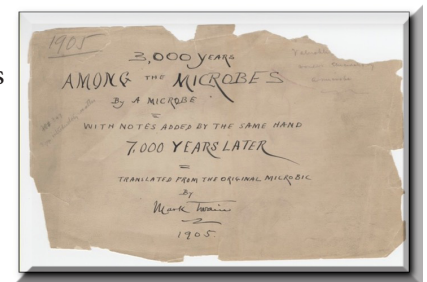 1905
3,000 YEARS
AMONG THE MICROBES
By A MICROBE
WITH NOTES ADDED BY THE SAME HAND
7,000 YEARS LATER
TRANSLATED FROM THE ORIGINAL MICROBIC
By
Mark Twain
1905.
s